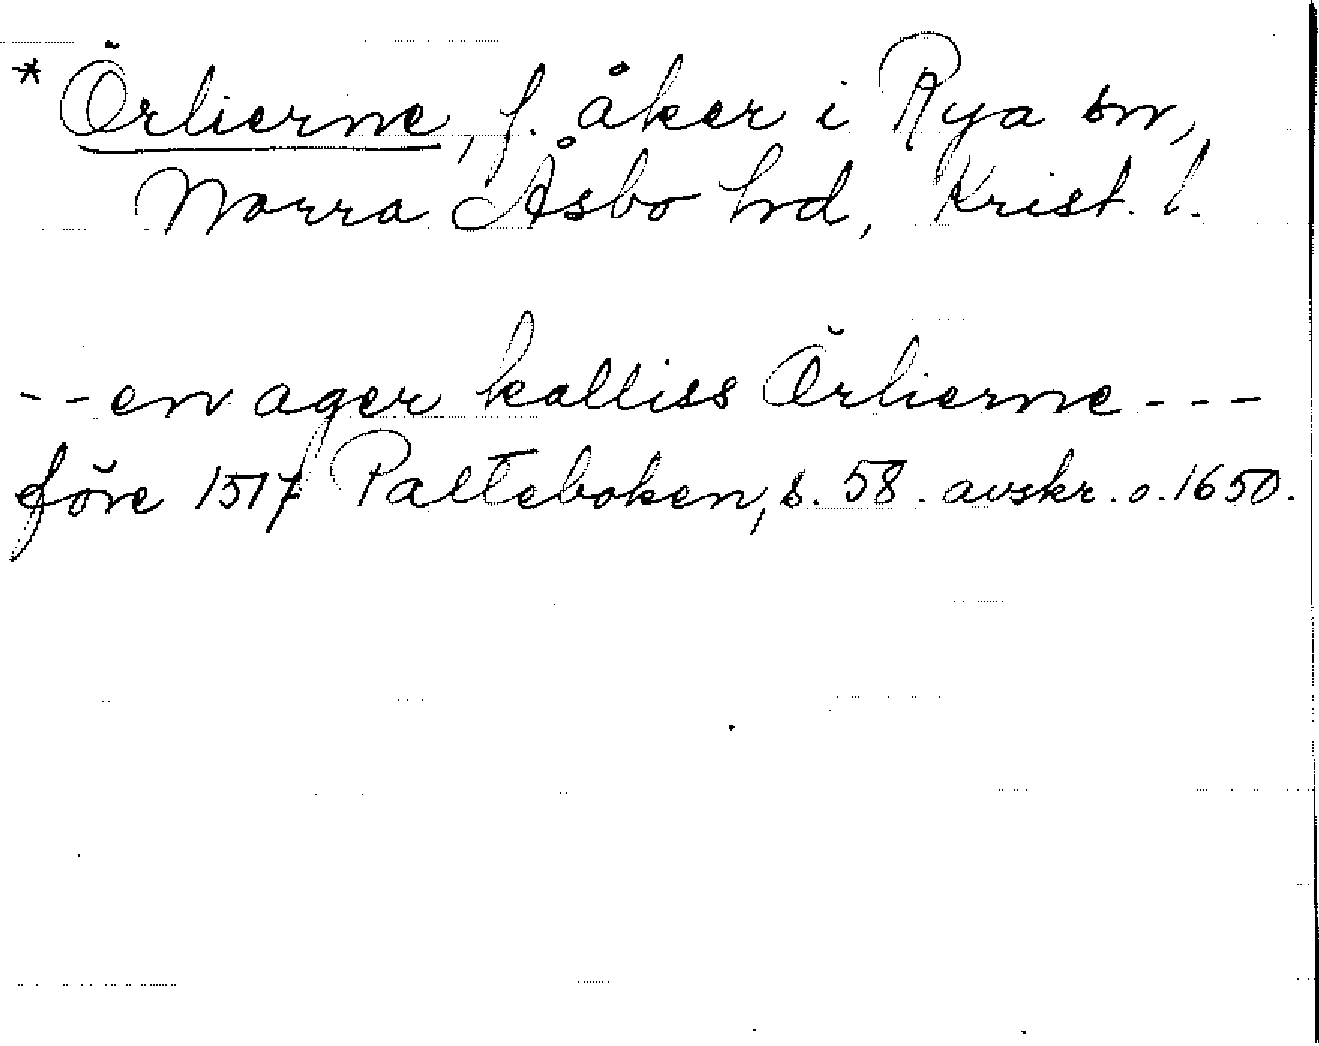 * Örlierne, f. åker i Rya sn,
Norra Åsbo hrd, Krist. l.
-- en ager kalliss Örlierne ---
före 1517 Palteboken, s. 58. avskr. o. 1650.